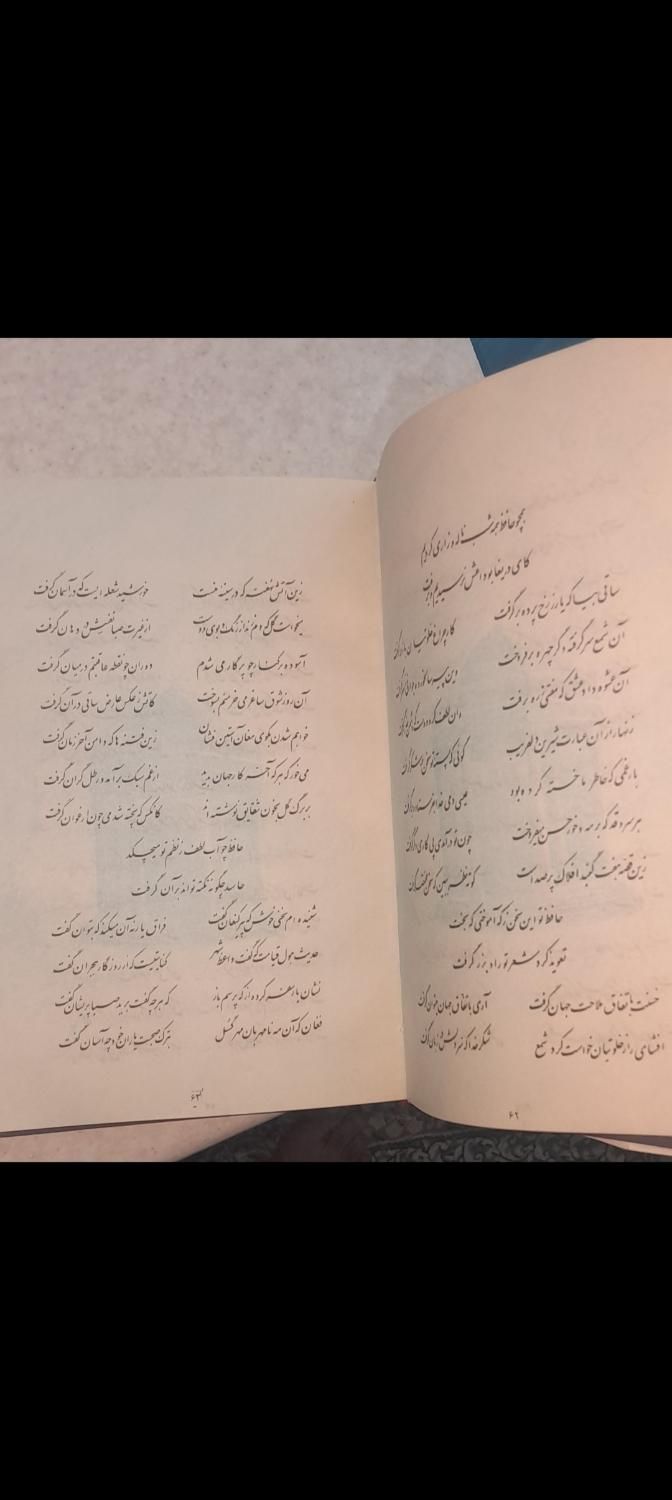 همچو حافظ همه شب ناله و زاری کردیم
کای دریغا بوداعش نرسیدیم و برفت
ساقی بیا که یار ز رخ پرده برگرفت کار چراغ خلوتیان باز درگرفت
آن شمع سرگرفته دگر چهره برفروخت وین پیر سالخورده جوانی ز سر گرفت
آن عشوه داد عشق که مفتی ز ره برفت وان لطف کرد دوست که دشمن حذر گرفت
زنهار از آن عبارت شیرین دلفریب گوئی که پسته تو سخن در شکر گرفت
بار غمی که خاطر ما خسته کرده بود عیسی دمی خدا بفرستاد و برگرفت
هر سرو قد که بر مه و خور حسن میفروخت چون تو درآمدی پی کاری دگر گرفت
زین قصه هفت گنبد افلاک پر صداست کوته نظر ببین که سخن مختصر گرفت
حافظ تو این سخن ز که آموختی که بخت
تعویذ کرد شعر تو را و بزر گرفت
حسنت باتفاق ملاحت جهان گرفت آری باتفاق جهان میتوان گرفت
افشای راز خلوتیان خواست کرد شمع شکر خدا که سر دلش در زبان گرفت
۶۲
زین آتش نهفته که در سینه منست خورشید شعله ایست که در آسمان گرفت
میخواست گل که دم زند از رنگ و بوی دوست از غیرت صبا نفسش در دهان گرفت
آسوده بر کنار چو پرگار می شدم دوران چو نقطه عاقبتم در میان گرفت
آن روز شوق ساغر می خرمنم بسوخت کاتش ز عکس عارض ساقی در آن گرفت
خواهم شدن بکوی مغان آستین فشان زین فتنه ها که دامن آخر زمان گرفت
می خور که هر که آخر کار جهان بدید از غم سبک برآمد و رطل گران گرفت
بر برگ گل بخون شقایق نوشته اند کانکس که پخته شد می چون ارغوان گرفت
حافظ چو آب لطف ز نظم تو میچکد
حاسد چگونه نکته تواند بر آن گرفت
شنیده ام سخنی خوش که پیر کنعان گفت فراق یار نه آن میکند که بتوان گفت
حدیث هول قیامت که گفت واعظ شهر کنایتیست که از روزگار هجران گفت
نشان یار سفر کرده از که پرسم باز که هر چه گفت برید صبا پریشان گفت
فغان که آن مه نامهربان مهر گسل بترک صحبت یاران خود چه آسان گفت
۶۳